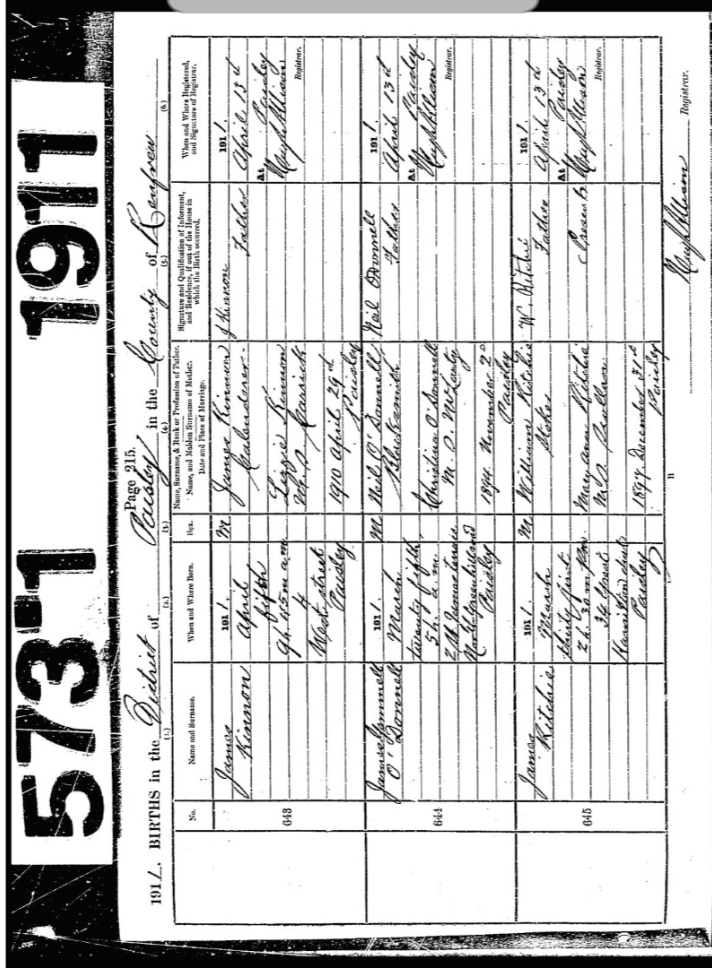 573-1 1911
Page 215.
1911. BIRTHS in the District of Paisley in the County of Renfrew
(1.) (2.) (3.) (4.) (5.) (6.)
No.
Name and Surname.
When and Where Born.
Sex.
Name, Surname, & Rank or Profession of Father.
Name, and Maiden Surname of Mother.
Date and Place of Marriage.
Signature and Qualification of Informant,
and Residence, if out of the House in
which the Birth occurred.
When and Where Registered,
and Signature of Registrar.
643
James
Kinnon
1911.
April
fifth
9 h. 45 m a.m.
4
West street
Paisley
M
James Kinnon
Calenderer
Lizzie Kinnon
M.S. Carrick
1910 April 29th
Paisley
J Kinnon
Father
1911.
April 13th
At Paisley
Hugh Allison
Registrar.
644
James
O'Donnell
1911.
March
twenty fifth
5 h. a.m.
Paisley
M
Neil O'Donnell
Blacksmith
Christina O'Donnell
M.S. McCarty
1894 November 2d
Paisley
Neil O'Donnell
Father
1911.
April 13th
At Paisley
Hugh Allison
Registrar.
645
James
Ritchie
1911.
March
thirty first
2 h. 35 m. p.m.
34
Paisley
M
William Ritchie
Stoker
Mary Ann Ritchie
M.S.
1897 December 31st
Paisley
W. Ritchie
Father
Present
1911.
April 13th
At Paisley
Hugh Allison
Registrar.
Hugh Allison Registrar.
B